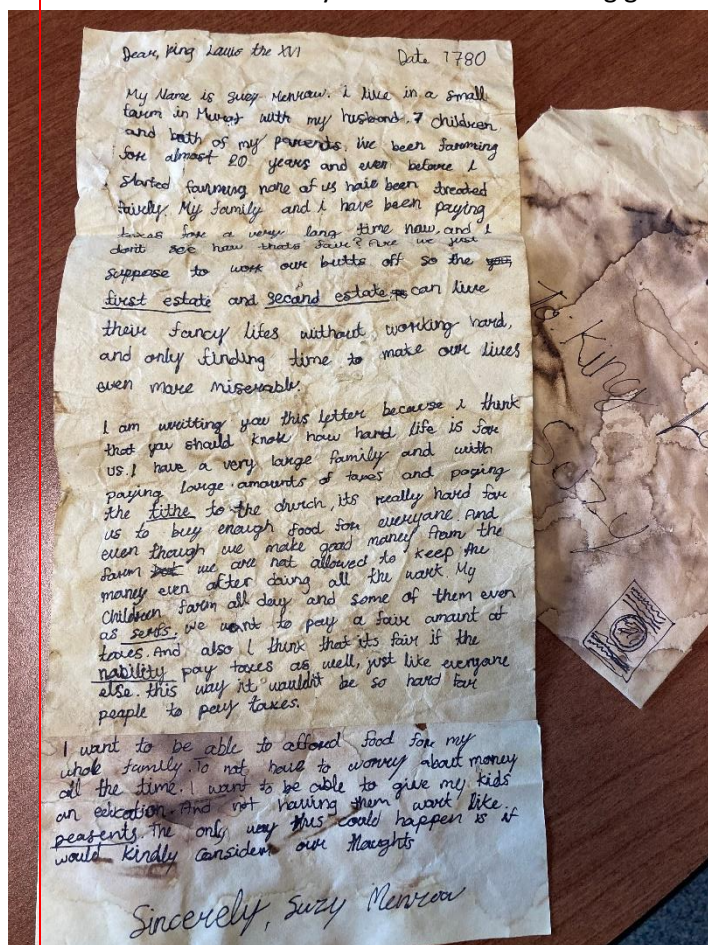 Dear, King Lauis the XVI Date 1780
My Name is Suzy Menrow. i live in a small
farm in Murat with my husband, 7 children
and bath of my parents. ive been farming
for almost 20 years and even before i
started farming none of us have been treated
fairly. My family and i have been paying
taxes for a very lang time now, and i
don't see how thats fair? Are we just
suppose to work our butts off so the
first estate and second estate, can live
their fancy lifes without working hard,
and only finding time to make our lives
even more miserable.
I am writting you this letter because i think
that you should know how hard life is for
us. I have a very large family and with
paying large amounts of taxes and paying
the tithe to the church, its really hard for
us to buy enough food for everyone. And
even though we make good money from the
farm we are not allowed to keep the
money even after doing all the work. My
children farm all day and some of them even
as serfs. we want to pay a fair amount of
taxes. And also I think that its fair if the
nobility pay taxes as well, just like everyone
else. this way it wouldn't be so hard for
people to pay taxes.
I want to be able to afford food for my
whole family. To not have to worry about money
all the time. I want to be able to give my kids
an education. And not having them work like
peasents. The only way this could happen is if
would kindly consider our thoughts
Sincerely, Suzy Menrow
To: King
Suzy